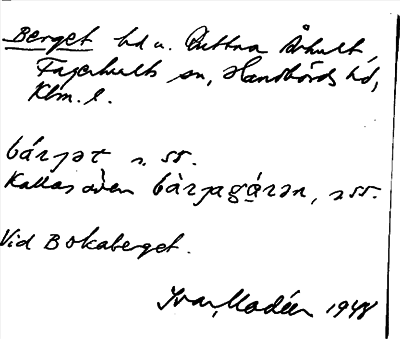 Berget hd u. Buttra Århult,
Fagerhults sn, Handbörds hd,
Klm. l.
bárjət n. ss.
Kallas även bàrjagá̱rən, s ss.
Vid Bokaberget.
Ivar Modéer 1948